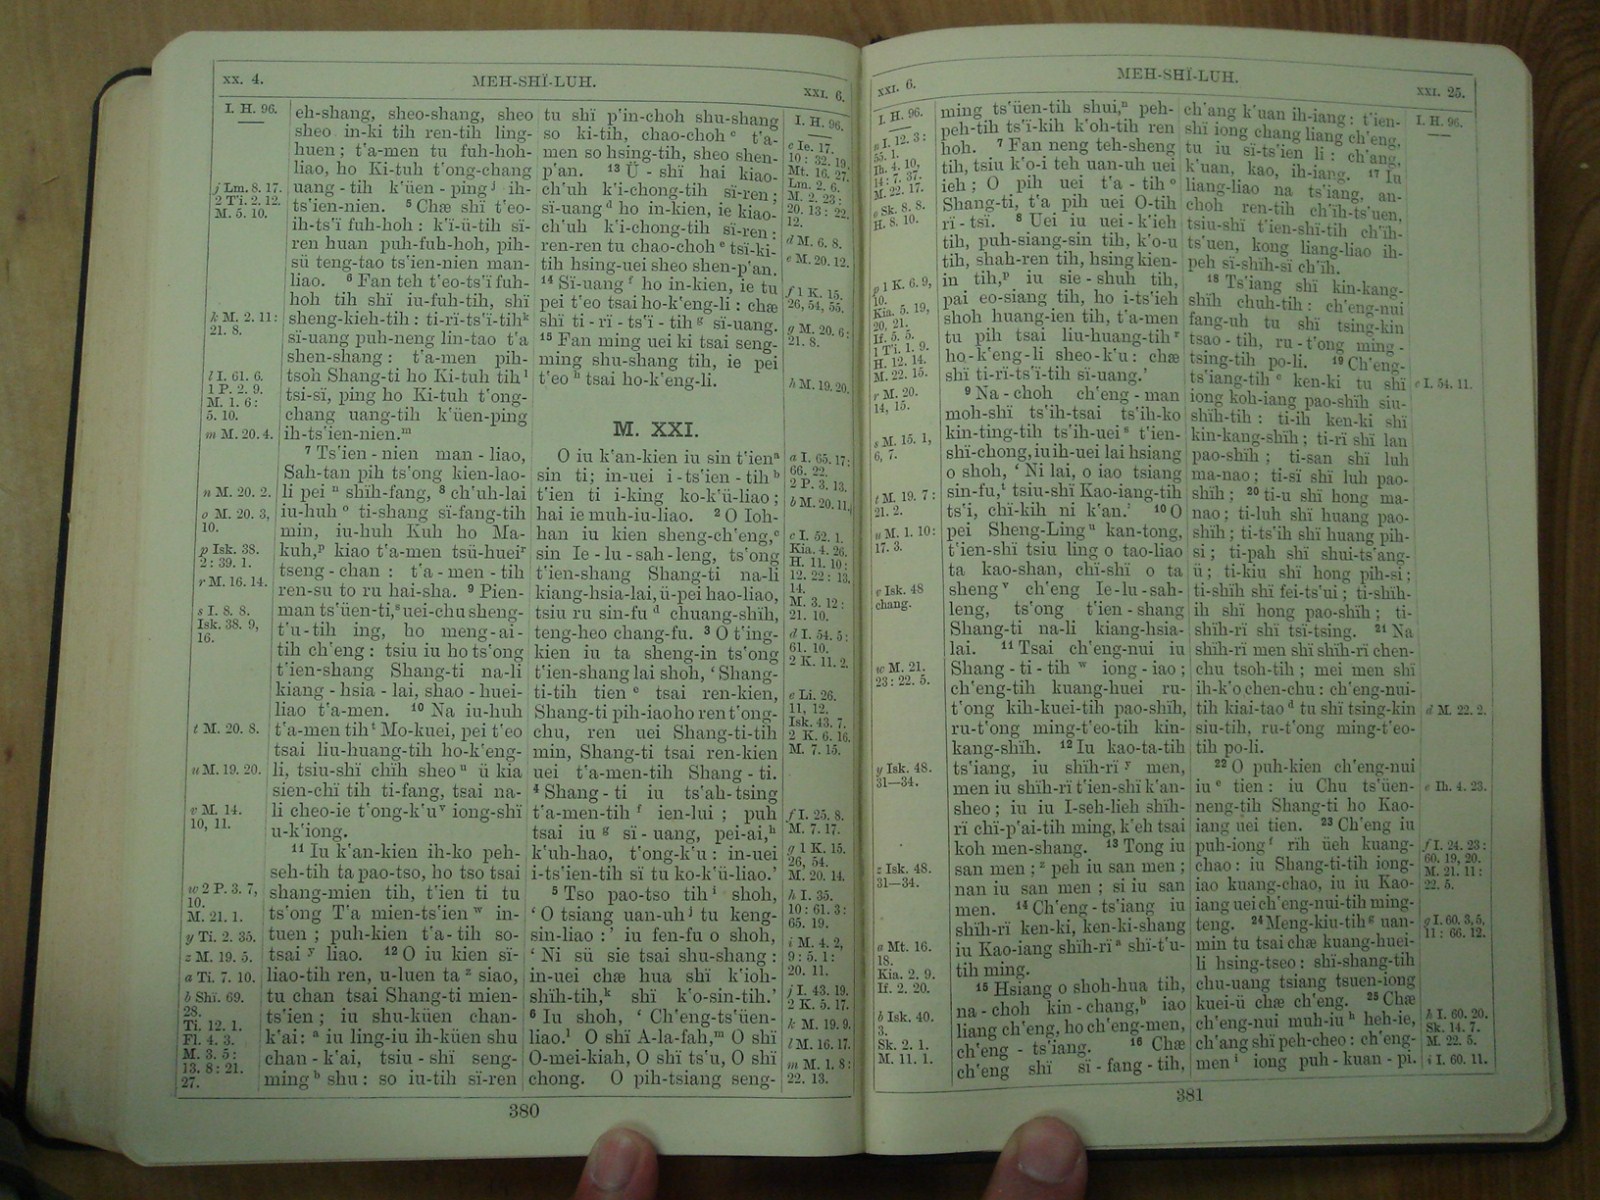 xx. 4.
MEH-SHÏ-LUH.
XXI. 6.
I. H. 96.
j Lm. 8. 17.
2 Ti. 2. 12.
M. 5. 10.
k M. 2. 11:
21. 8.
l I. 61. 6.
1 P. 2. 9.
M. 1. 6:
5. 10.
m M. 20. 4.
n M. 20. 2.
o M. 20. 3,
10.
p Isk. 38.
2: 39. 1.
r M. 16. 14.
s I. 8. 8.
Isk. 38. 9,
16.
t M. 20. 8.
u M. 19. 20.
v M. 14.
10, 11.
w 2 P. 3. 7,
10.
M. 21. 1.
y Ti. 2. 35.
z M. 19. 5.
a Ti. 7. 10.
b Shï. 69.
28.
Ti. 12. 1.
Fl. 4. 3.
M. 3. 5:
13. 8: 21.
27.
eh-shang, sheo-shang, sheo
sheo in-ki tih ren-tih ling-
huen; t'a-men tu fuh-hoh-
liao, ho Ki-tuh t'ong-chang
uang-tih k'üen-ping j ih-
ts'ien-nien. 5 Chæ shï t'eo-
ih-ts'ï fuh-hoh: k'i-ü-tih sï-
ren huan puh-fuh-hoh, pih-
sü teng-tao ts'ien-nien man-
liao. 6 Fan teh t'eo-ts'ï fuh-
hoh tih shï iu-fuh-tih, shï
sheng-kieh-tih: ti-rï-ts'ï-tih k
sï-uang puh-neng lin-tao t'a
shen-shang: t'a-men pih-
tsoh Shang-ti ho Ki-tuh tih l
tsi-sï, ping ho Ki-tuh t'ong-
chang uang-tih k'üen-ping
ih-ts'ien-nien. m
7 Ts'ien-nien man-liao,
Sah-tan pih ts'ong kien-lao-
li pei n shïh-fang, 8 ch'uh-lai
iu-huh o ti-shang sï-fang-tih
min, iu-huh Kuh ho Ma-
kuh, p kiao t'a-men tsü-huei r
tseng-chan: t'a-men-tih
ren-su to ru hai-sha. 9 Pien-
man ts'üen-ti, s uei-chu sheng-
t'u-tih ing, ho meng-ai-
tih ch'eng: tsiu iu ho ts'ong
t'ien-shang Shang-ti na-li
kiang-hsia-lai, shao-huei-
liao t'a-men. 10 Na iu-huh
t'a-men tih t Mo-kuei, pei t'eo
tsai liu-huang-tih ho-k'eng-
li, tsiu-shï chïh sheo u ü kia
sien-chï tih ti-fang, tsai na-
li cheo-ie t'ong-k'u v iong-shï
u-k'iong.
11 Iu k'an-kien ih-ko peh-
seh-tih ta pao-tso, ho tso tsai
shang-mien tih, t'ien ti tu
ts'ong T'a mien-ts'ien w in-
tuen; puh-kien t'a-tih so-
tsai y liao. 12 O iu kien sï-
liao-tih ren, u-luen ta z siao,
tu chan tsai Shang-ti mien-
ts'ien; iu shu-küen chan-
k'ai: a iu ling-iu ih-küen shu
chan-k'ai, tsiu-shï seng-
ming b shu: so iu-tih sï-ren
tu shï p'in-choh shu-shang
so ki-tih, chao-choh c t'a-
men so hsing-tih, sheo shen-
p'an. 13 Ü-shï hai kiao-
ch'uh k'i-chong-tih sï-ren;
sï-uang d ho in-kien, ie kiao-
ch'uh k'i-chong-tih sï-ren:
ren-ren tu chao-choh e tsï-ki-
tih hsing-uei sheo shen-p'an.
14 Sï-uang f ho in-kien, ie tu
pei t'eo tsai ho-k'eng-li: chæ
shï ti-rï-ts'ï-tih g sï-uang.
15 Fan ming uei ki tsai seng-
ming shu-shang tih, ie pei
t'eo h tsai ho-k'eng-li.
M. XXI.
O iu k'an-kien iu sin t'ien a
sin ti; in-uei i-ts'ien-tih b
t'ien ti i-king ko-k'ü-liao;
hai ie muh-iu-liao. 2 O Ioh-
han iu kien sheng-ch'eng, c
sin Ie-lu-sah-leng, ts'ong
t'ien-shang Shang-ti na-li
kiang-hsia-lai, ü-pei hao-liao,
tsiu ru sin-fu d chuang-shïh,
teng-heo chang-fu. 3 O t'ing-
kien iu ta sheng-in ts'ong
t'ien-shang lai shoh, ‘Shang-
ti-tih tien e tsai ren-kien,
Shang-ti pih-iao ho ren t'ong-
chu, ren uei Shang-ti-tih
min, Shang-ti tsai ren-kien
uei t'a-men-tih Shang-ti.
4 Shang-ti iu ts'ah-tsing
t'a-men-tih f ien-lui; puh
tsai iu g sï-uang, pei-ai, h
k'uh-hao, t'ong-k'u: in-uei
i-ts'ien-tih sï tu ko-k'ü-liao.’
5 Tso pao-tso tih i shoh,
‘O tsiang uan-uh j tu keng-
sin-liao:’ iu fen-fu o shoh,
‘Ni sü sie tsai shu-shang:
in-uei chæ hua shï k'ioh-
shïh-tih, k shï k'o-sin-tih.’
6 Iu shoh, ‘Ch'eng-ts'üen-
liao. l O shï A-la-fah, m O shï
O-mei-kiah, O shï ts'u, O shï
chong. O pih-tsiang seng-
I. H. 96.
c Ie. 17.
10: 32. 19.
Mt. 16. 27.
Lm. 2. 6.
M. 2. 23:
20. 13: 22.
12.
d M. 6. 8.
e M. 20. 12.
f 1 K. 15.
26, 54, 55.
g M. 20. 6:
21. 8.
h M. 19. 20.
a I. 65. 17:
66. 22.
2 P. 3. 13.
b M. 20. 11.
c I. 52. 1.
Kia. 4. 26.
H. 11. 10:
12. 22: 13.
14.
M. 3. 12:
21. 10.
d I. 54. 5:
61. 10.
2 K. 11. 2.
e Li. 26.
11, 12.
Isk. 43. 7.
2 K. 6. 16.
M. 7. 15.
f I. 25. 8.
M. 7. 17.
g 1 K. 15.
26, 54.
M. 20. 14.
h I. 35.
10: 61. 3:
65. 19.
i M. 4. 2,
9: 5. 1:
20. 11.
j I. 43. 19.
2 K. 5. 17.
k M. 19. 9.
l M. 16. 17.
m M. 1. 8:
22. 13.
380
XXI. 6.
MEH-SHÏ-LUH.
XXI. 25.
I. H. 96.
n I. 12. 3:
55. 1.
Ih. 4. 10,
14: 7. 37.
M. 22. 17.
o Sk. 8. 8.
H. 8. 10.
p 1 K. 6. 9,
10.
Kia. 5. 19,
20, 21.
If. 5. 5.
1 Ti. 1. 9.
H. 12. 14.
M. 22. 15.
r M. 20.
14, 15.
s M. 15. 1,
6, 7.
t M. 19. 7:
21. 2.
u M. 1. 10:
17. 3.
v Isk. 48
chang.
w M. 21.
23: 22. 5.
y Isk. 48.
31—34.
z Isk. 48.
31—34.
a Mt. 16.
18.
Kia. 2. 9.
If. 2. 20.
b Isk. 40.
3.
Sk. 2. 1.
M. 11. 1.
ming ts'üen-tih shui, n peh-
peh-tih ts'ï-kih k'oh-tih ren
hoh. 7 Fan neng teh-sheng
tih, tsiu k'o-i teh uan-uh uei
ieh; O pih uei t'a-tih o
Shang-ti, t'a pih uei O-tih
rï-tsï. 8 Uei iu uei-k'ieh
tih, puh-siang-sin tih, k'o-u
tih, shah-ren tih, hsing kien-
in tih, p iu sie-shuh tih,
pai eo-siang tih, ho i-ts'ieh
shoh huang-ien tih, t'a-men
tu pih tsai liu-huang-tih r
ho-k'eng-li sheo-k'u: chæ
shï ti-rï-ts'ï-tih sï-uang.’
9 Na-choh ch'eng-man
moh-shï ts'ih-tsai ts'ih-ko
kin-ting-tih ts'ih-uei s t'ien-
shï-chong, iu ih-uei lai hsiang
o shoh, ‘Ni lai, o iao tsiang
sin-fu, t tsiu-shï Kao-iang-tih
ts'i, chï-kih ni k'an.’ 10 O
pei Sheng-Ling u kan-tong,
t'ien-shï tsiu ling o tao-liao
ta kao-shan, chï-shï o ta
sheng v ch'eng Ie-lu-sah-
leng, ts'ong t'ien-shang
Shang-ti na-li kiang-hsia-
lai. 11 Tsai ch'eng-nui iu
Shang-ti-tih w iong-iao;
ch'eng-tih kuang-huei ru-
t'ong kih-kuei-tih pao-shïh,
ru-t'ong ming-t'eo-tih kin-
kang-shïh. 12 Iu kao-ta-tih
ts'iang, iu shïh-rï y men,
men iu shïh-rï t'ien-shï k'an-
sheo; iu iu I-seh-lieh shïh-
rï chï-p'ai-tih ming, k'eh tsai
koh men-shang. 13 Tong iu
san men; z peh iu san men;
nan iu san men; si iu san
men. 14 Ch'eng-ts'iang iu
shïh-rï ken-ki, ken-ki-shang
iu Kao-iang shïh-rï a shï-t'u-
tih ming.
15 Hsiang o shoh-hua tih,
na-choh kin-chang, b iao
liang ch'eng, ho ch'eng-men,
ch'eng-ts'iang. 16 Chæ
ch'eng shï sï-fang-tih,
ch'ang k'uan ih-iang: t'ien-
shï iong chang liang ch'eng,
tu iu sï-ts'ien li: ch'ang,
k'uan, kao, ih-iang. 17 Iu
liang-liao na ts'iang, an-
choh ren-tih ch'ïh-ts'uen,
tsiu-shï t'ien-shï-tih ch'ïh-
ts'uen, kong liang-liao ih-
peh sï-shïh-sï ch'ïh.
18 Ts'iang shï kin-kang-
shïh chuh-tih: ch'eng-nui
fang-uh tu shï tsing-kin
tsao-tih, ru-t'ong ming-
tsing-tih po-li. 19 Ch'eng-
ts'iang-tih c ken-ki tu shï
iong koh-iang pao-shïh siu-
shïh-tih: ti-ih ken-ki shï
kin-kang-shïh; ti-rï shï lan
pao-shïh; ti-san shï luh
ma-nao; ti-sï shï luh pao-
shïh; 20 ti-u shï hong ma-
nao; ti-luh shï huang pao-
shïh; ti-ts'ih shï huang pih-
si; ti-pah shï shui-ts'ang-
ü; ti-kiu shï hong pih-si;
ti-shïh shï fei-ts'ui; ti-shïh-
ih shï hong pao-shïh; ti-
shïh-rï shï tsï-tsing. 21 Na
shïh-rï men shï shïh-rï chen-
chu tsoh-tih; mei men shï
ih-k'o chen-chu: ch'eng-nui-
tih kiai-tao d tu shï tsing-kin
siu-tih, ru-t'ong ming-t'eo-
tih po-li.
22 O puh-kien ch'eng-nui
iu e tien: iu Chu ts'üen-
neng-tih Shang-ti ho Kao-
iang uei tien. 23 Ch'eng iu
puh-iong f rïh üeh kuang-
chao: iu Shang-ti-tih iong-
iao kuang-chao, iu iu Kao-
iang uei ch'eng-nui-tih ming-
teng. 24 Meng-kiu-tih g uan-
min tu tsai chæ kuang-huei-
li hsing-tseo: shï-shang-tih
chu-uang tsiang tsuen-iong
kuei-ü chæ ch'eng. 25 Chæ
ch'eng-nui muh-iu h heh-ie,
ch'ang shï peh-cheo: ch'eng-
men i iong puh-kuan-pi.
I. H. 96.
c I. 54. 11.
d M. 22. 2.
e Ih. 4. 23.
f I. 24. 23:
60. 19, 20.
M. 21. 11:
22. 5.
g I. 60. 3, 5,
11: 66. 12.
h I. 60. 20.
Sk. 14. 7.
M. 22. 5.
i I. 60. 11.
381